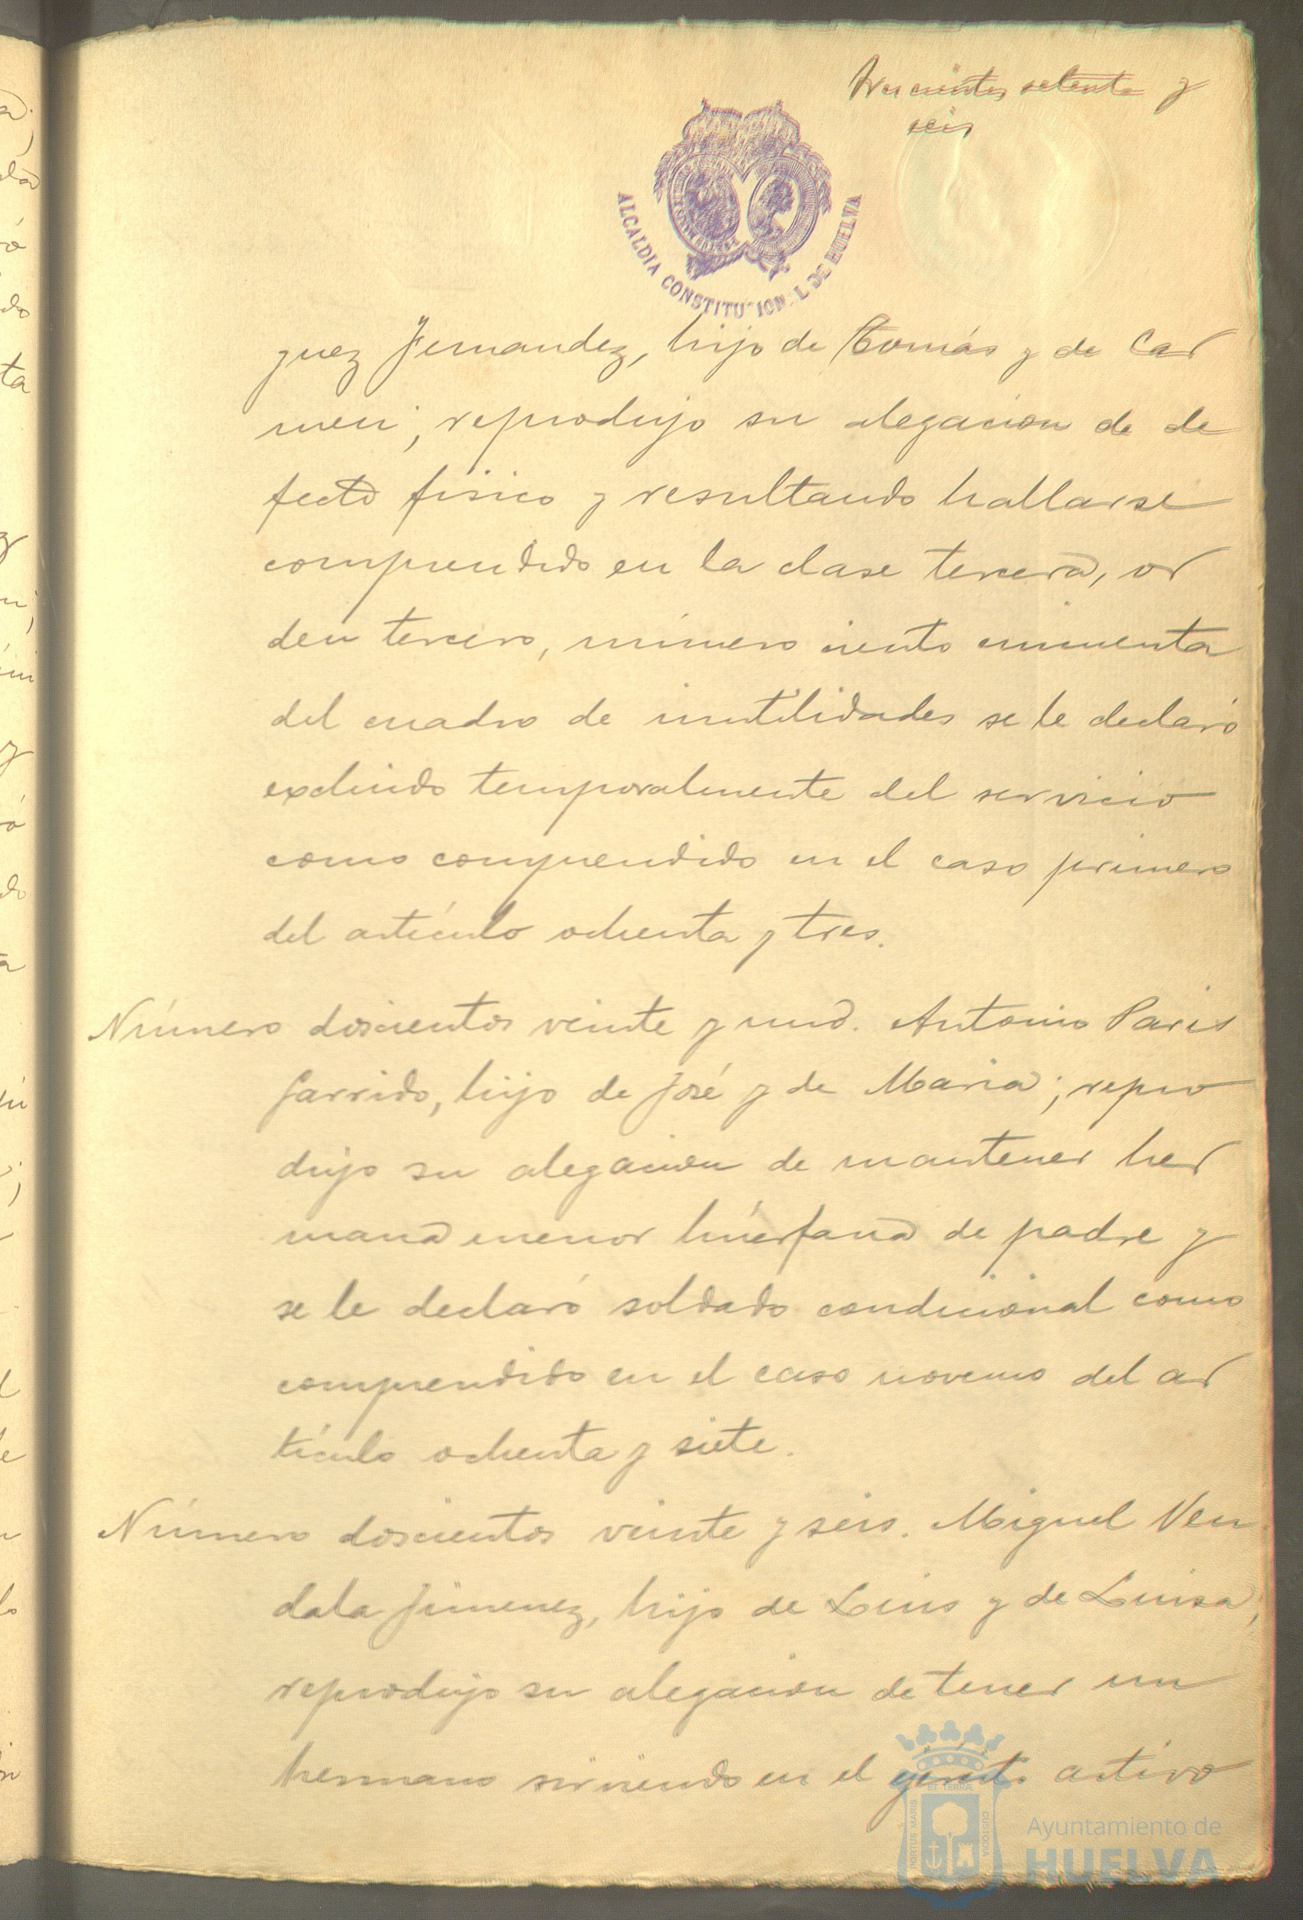 trescientos setenta y
seis
ALCALDIA CONSTITUCIONAL DE HUELVA
guez Fernandez, hijo de Tomás y de Car
men; reprodujo su alegacion de de
fecto físico y resultando hallarse
comprendido en la clase tercera, or
den tercero, número ciento cincuenta
del cuadro de inutilidades se le declaró
excluido temporalmente del servicio
como comprendido en el caso primero
del artículo ochenta y tres.
Número doscientos veinte y uno. Antonio Paris
Garrido, hijo de José y de Maria; repro
dujo su alegacion de mantener her
mana menor huérfana de padre y
se le declaró soldado condicional como
comprendido en el caso noveno del ar
tículo ochenta y siete.
Número doscientos veinte y seis. Miguel Ven
dala Jimenez, hijo de Luis y de Luisa;
reprodujo su alegacion de tener un
hermano sirviendo en el ejército activo
PORTUS MARIS ET TERRAE CUSTODIA
Ayuntamiento de
HUELVA